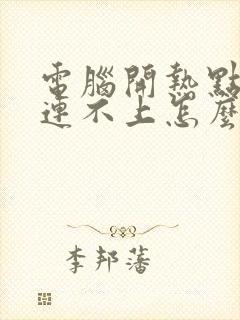 電腦開熱點
連不上怎麼
李邦藩